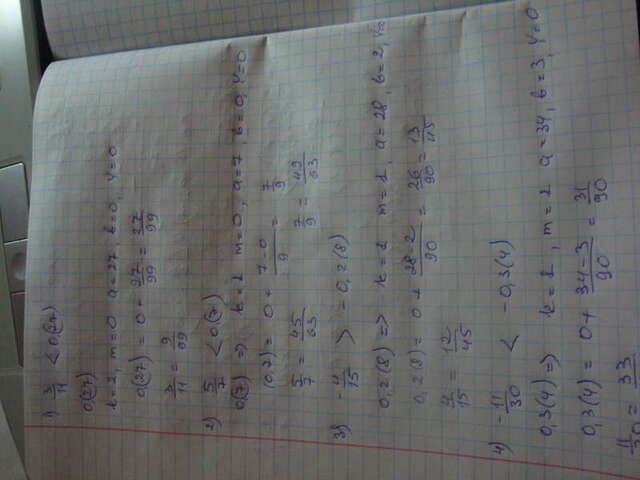 1) 3/11 < 0(27)
0(27)
k=2, m=0 a=27, b=0, Y=0
0(27) = 0 + 27/99 = 27/99
3/11 = 9/99
2) 5/7 < 0(7)
0(7) => k=1 m=0, a=7, b=0, Y=0
(0,7) = 0 + 7-0/9 = 7/9
5/7 = 45/63 7/9 = 49/63
3) -4/15 > -0,2(8)
0,2(8) => k=1 m=1, a=28, b=2, Y=0
0,2(8) = 0 + 28-2/90 = 26/90 = 13/45
4/15 = 12/45
4) -11/30 < -0,3(4)
0,3(4) => k=1, m=1 a=34, b=3, Y=0
0,3(4) = 0 + 34-3/90 = 31/90
11/30 = 33